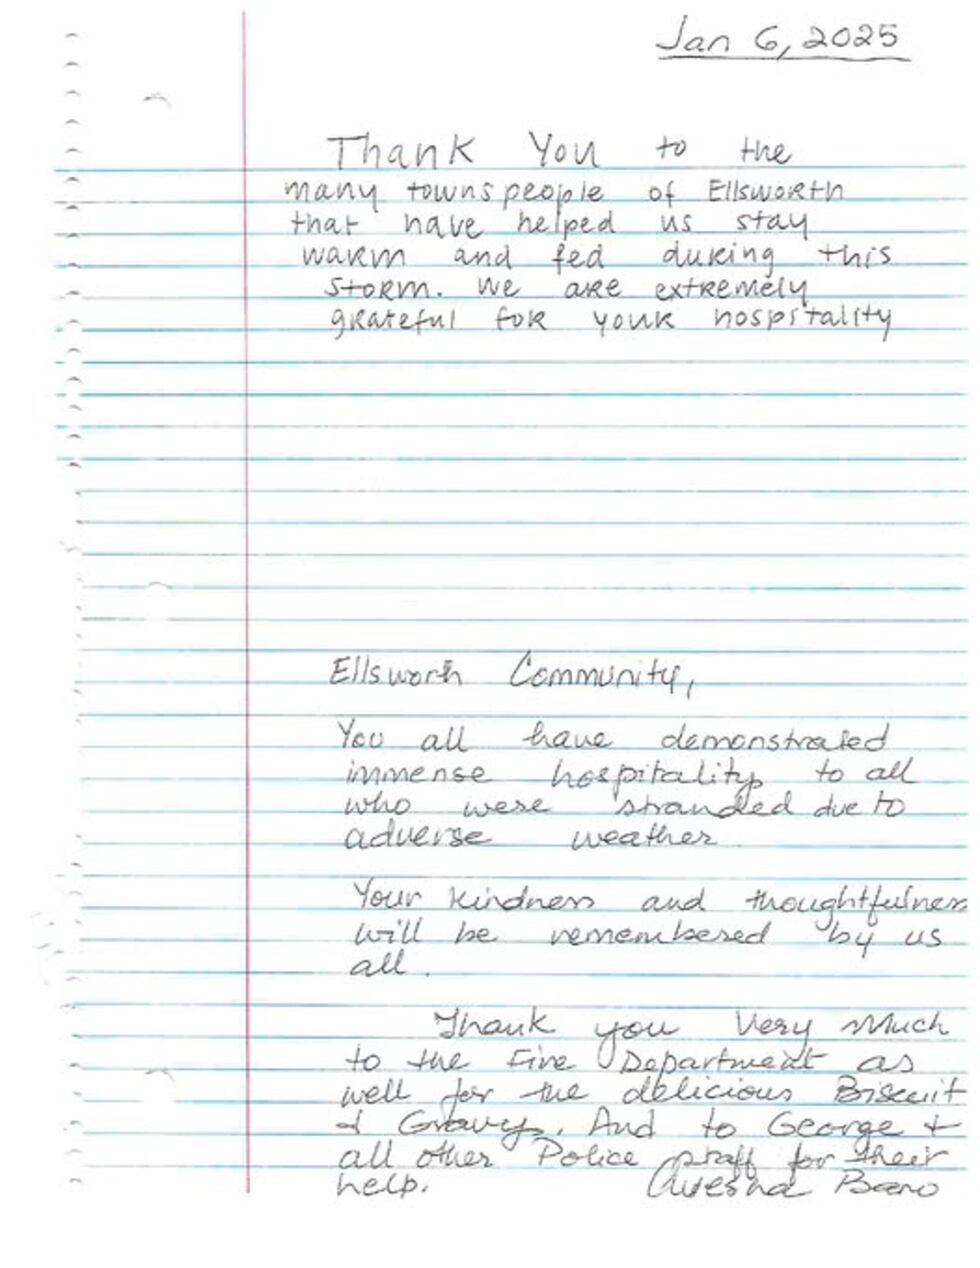 Jan 6, 2025
Thank You to the
many towns people of Ellsworth
that have helped us stay
warm and fed during this
storm. We are extremely
grateful for your hospitality
Ellsworth Community,
You all have demonstrated
immense hospitality to all
who were stranded due to
adverse weather.
Your kindness and thoughtfulness
will be remembered by us
all.
Thank you Very Much
to the Fire Department as
well for the delicious Biscuit
& Gravy. And to George &
all other Police staff for their
help.